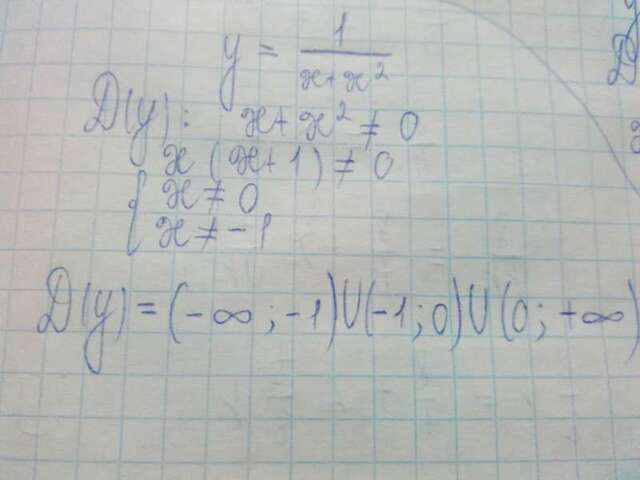 y = 1/(x+x²)
D(y): x+x² ≠ 0
x(x+1) ≠ 0
{ x ≠ 0
x ≠ -1
D(y) = (-∞; -1)U(-1; 0)U(0; +∞)